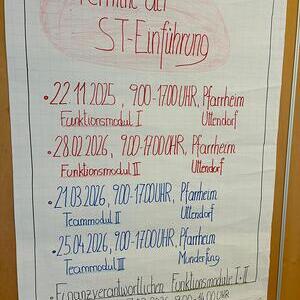 Termine der
ST-Einführung
• 22.11.2025, 9.00-17.00 UHR, Pfarrheim
Funktionsmodul I Uttendorf
• 28.02.2026, 9.00-17.00 UHR, Pfarrheim
Funktionsmodul II Uttendorf
• 21.03.2026, 9.00-17.00 UHR, Pfarrheim
Teammodul II Uttendorf
• 25.04.2026, 9.00-17.00 UHR, Pfarrheim
Teammodul III Munderfing
• Finanzverantwortlichen Funktionsmodule I+II